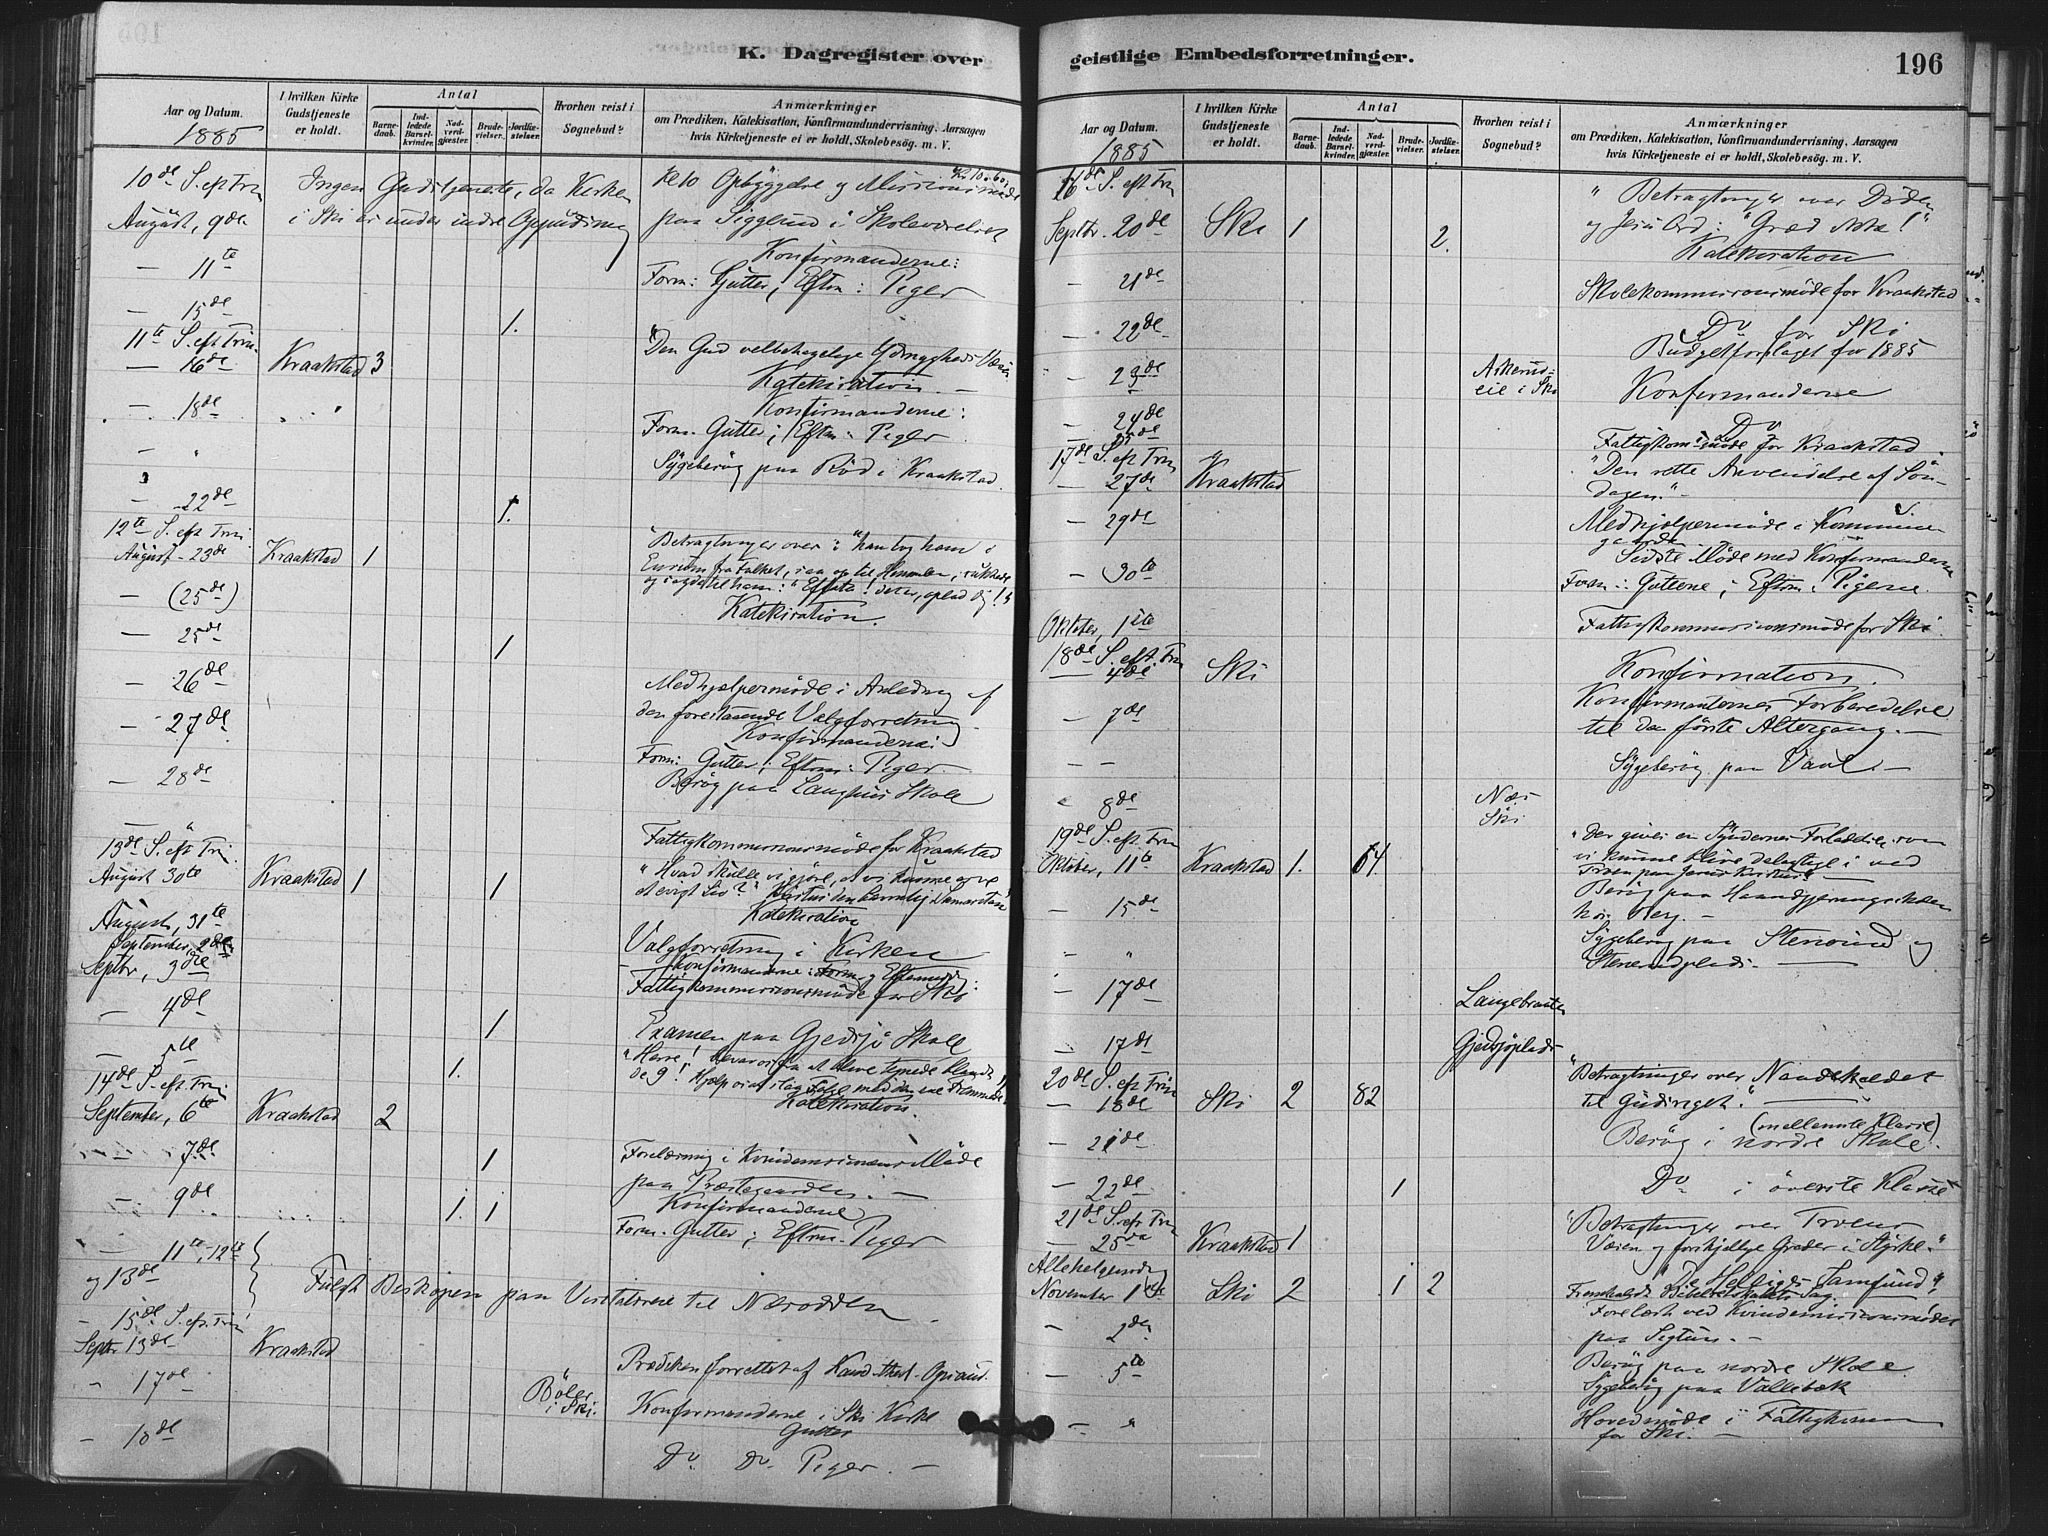 K. Dagregister over
Aar og Datum.
1885
I hvilken Kirke
Gudstjeneste
er holdt.
Antal
Barne-
daab.
Ind-
ledede
Barsel-
kvinder.
Nad-
verd-
gjæster.
Brude-
vielser.
Jordfæ-
stelser.
Hvorhen reist i
Sognebud?
Anmærkninger
om Prædiken, Katekisation, Konfirmandundervisning, Aarsagen
hvis Kirketjeneste ei er holdt, Skolebesøg. m. V.
10de S. eft Trin Ingen Gudstjeneste, da Kirken Kl 10 Opbyggelse og Missionsmøde
August, 9de i Ski er under indre paa i Skoleværelset
— 11te Konfirmanderne:
Form: Gutter, Eftm: Piger
— 15de 1.
11te S. eft Trin
— 16de Kraakstad 3 "Den Gud velbehagelige
Katekisation —
— 18de Konfirmanderne:
Form. Gutter; Eftm: Piger
Sygebesøg paa Rød i Kraakstad.
— 22de 1.
12te S. eft Trin
August 23de Kraakstad 1 Betragtninger over: "han tog ham i
Enrum fra Folket, saa op til Himmelen, sukkede
og sagde til ham: "Effata! det er, oplad dig!"
Katekisation.
— (25de)
— 25de 1
— 26de Medhjælpermøde i Anledng af
— 27de den forestaaende Valgforretning
Konfirmanderne:
Form: Gutter; Eftm: Piger.
— 28de Besøg paa Langhus Skole
— " Fattigkommissionsmøde for Kraakstad
13de S. eft Trin
August 30te Kraakstad 1 1 "Hvad skulle vi gjøre, at vi kunne arve
et evigt Liv?"
Katekisation
August, 31te Valgforretning i Kirken
September, 2de Konfirmanderne: Form. og Eftermidd:
Septbr, 3die Fattigkommissionsmøde for Ski
— 4de 1 Examen paa Gjedsjø Skole
— 5te 1. "Herre! bevar os fra at blive
14de S. eft Trin
September, 6te Kraakstad 2 Katekisation.
— 7de 1 Forelæsning i Kvindemissions Møde
paa Præstegaarden. —
— 9de 1. 1 Konfirmanderne
Form. Gutter; Eftm. Piger
— 11te, 12te
og 13de Fulgt Biskopen paa Visitatsreise til Næsodden
— 15de S. eft. Trin
Septbr 13de Kraakstad Prædiken forrettet af Kand. theol.
" 17de Bøler
i Ski. Konfirmanderne i Ski Kirke
Gutter
— 18de Do Do Piger. —
geistlige Embedsforretninger.
196
Aar og Datum.
1885
I hvilken Kirke
Gudstjeneste
er holdt.
Antal
Barne-
daab.
Ind-
ledede
Barsel-
kvinder.
Nad-
verd-
gjæster.
Brude-
vielser.
Jordfæ-
stelser.
Hvorhen reist i
Sognebud?
Anmærkninger
om Prædiken, Katekisation, Konfirmandundervisning, Aarsagen
hvis Kirketjeneste ei er holdt, Skolebesøg. m. V.
16de S. eft Trin
Septbr. 20de Ski 1 2. "Betragtninger over Døden
og Jesu Ord: "Græd ikke!"
Katekisation
— 21de Skolekommissionsmøde for Kraakstad
— 22de Do for Ski
Budgetforslaget for 1885
— 23de Askerud-
eie i Ski Konfirmanderne
— 24de Do
— 25de Fattigkomismøde for Kraakstad.
17de S. eft Trin
— 27de Kraakstad "Den rette Anvendelse af Søn-
dagen." —
— 29de Medhjælpermøde i Kommune-
gaarden
— 30te Sidste Møde med Konfirmanderne
Form: Guttene; Eftm: Pigerne.
Oktober, 1ste Fattigkommissionsmøde for Ski.
18de S. eft. Trin
— 4de Ski Konfirmation.
— 7de Konfirmanternes Forberedelse
til den første Altergang. —
— — Sygebesøg paa —
— 8de Næs
Ski
19de S. eft Trin
Oktober, 11te Kraakstad 1. 64. "Der gives en Syndernes Forladelse, som
vi kunne blive delagtige i ved
Troen paa Jesus Kristus —
— 15de Besøg paa Haandgjerningsskolen
hos —
" " Sygebesøg paa Stensrud og
Stensrudplads. —
— 17de Langebraaten
— 17de Gjedsjøplads
20de S. eft Trin
— 18de Ski 2 82 "Betragtninger over Naadekaldet
til Gudsriget." —
— 21de Besøg i nordre Skole. (mellemste Klasse)
— 22de 1 Do i øverste Klasse
21de S. eft Trin
— 25de Kraakstad 1 "Betragtninger over Troens
Væsen og forskjellige Grader i Styrke."
Allehelgensdag
November 1ste Ski 2 1 2 "De Helliges Samfund",
— 2den Forelæst ved Kvindemissionsmødet
paa —
— 5te Besøg paa nordre Skole.
Sygebesøg paa Vallibæk
— " Hovedmøde i Fattigkommissn
for Ski. —